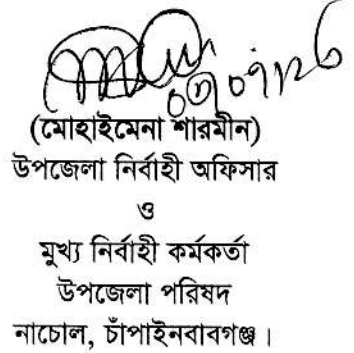 (মোহাইমেনা শারমীন)
উপজেলা নির্বাহী অফিসার
ও
মুখ্য নির্বাহী কর্মকর্তা
উপজেলা পরিষদ
নাচোল, চাঁপাইনবাবগঞ্জ।